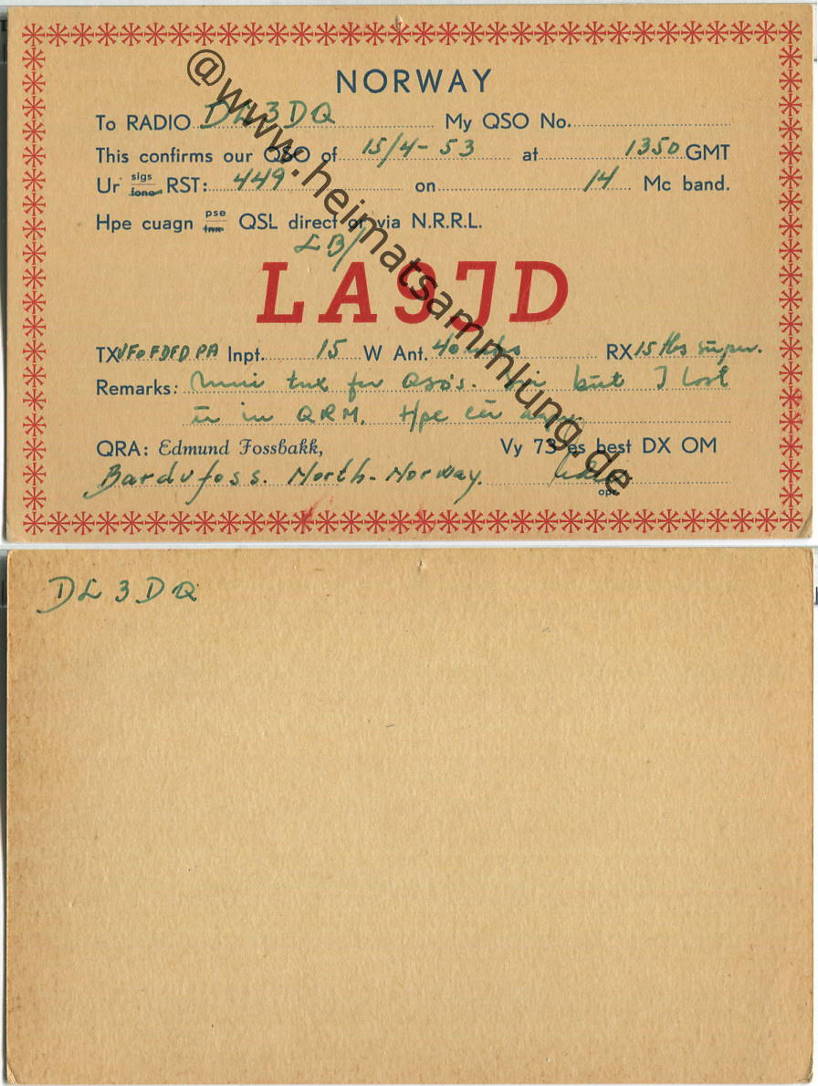 NORWAY
To RADIO DL3DQ My QSO No.
This confirms our QSO of 15/4-53 at 1350 GMT
Ur sigs fone RST: 449 on 14 Mc band.
Hpe cuagn pse tnx QSL direct or via N.R.R.L.
LB/
LA9JD
TX VFO FD FD PA Inpt. 15 W Ant. 40 RX 15 tbs super.
Remarks: tnx fer QSO's. but I lost
ur in QRM. Hpe cu
QRA: Edmund Fossbakk, Vy 73 es best DX OM
Bardufoss. North-Norway.
opr
@www.heimatsammlung.de
DL3DQ